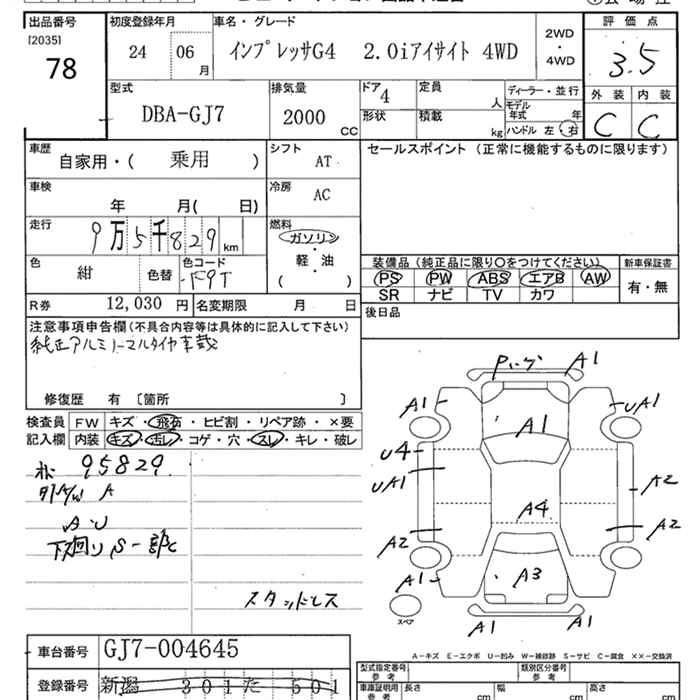 出品番号 初度登録年月 車名・グレード 評価点
[2035] 78
24 06 月 インプレッサG4 2.0iアイサイト 4WD
2WD・4WD
3.5
型式 排気量 ドア 定員 ディーラー・並行 外装 内装
DBA-GJ7 2000 CC 4 人 モデル年式 年
形状 積載 kg ハンドル 左 右 C C
車歴 シフト セールスポイント (正常に機能するものに限ります)
自家用・( 乗用 ) AT
車検 冷房
年 月( 日) AC
走行 燃料
9万5千829 km ガソリン
軽・油
( )
装備品 (純正品に限り○をつけてください) 新車保証書
色 色替 色コード PS PW ABS エアB AW 有・無
紺 F9T SR ナビ TV カワ
R券 12,030 円 名変期限 月 日 後日品
注意事項申告欄(不具合内容等は具体的に記入して下さい)
純正アルミノーマルタイヤ車載
修復歴 有 〔箇所 〕
検査員 FW キズ・飛石・ヒビ割・リペア跡・×要
記入欄 内装 キズ・汚レ・コゲ・穴・スレ・キレ・破レ
95829
A
A・U
下廻りS一部C
スタッドレス
Pハゲ A1
A1 UA1
A1
U4
UA1 A2
A4
A2 A2
A1 A3
スペア
A1 A1
A-キズ E-エクボ U-凹み W-補修跡 S-サビ C-腐食 ××-交換済
車台番号 GJ7-004645
登録番号 新潟 301 た 501
型式指定番号 参考 類別区分番号 参考
車庫証明用 参考 長さ cm 幅 cm 高さ cm